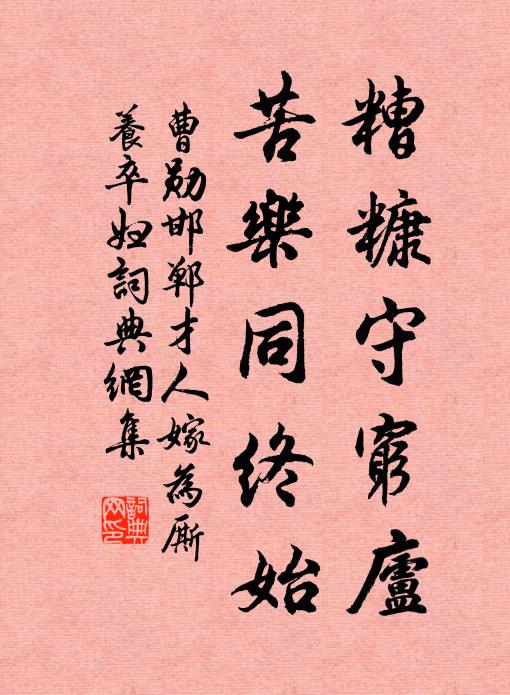 糟糠守窮廬
苦樂同終始
曹勛邯鄲才人嫁為厮
養卒婦詞典網集
詞典网印